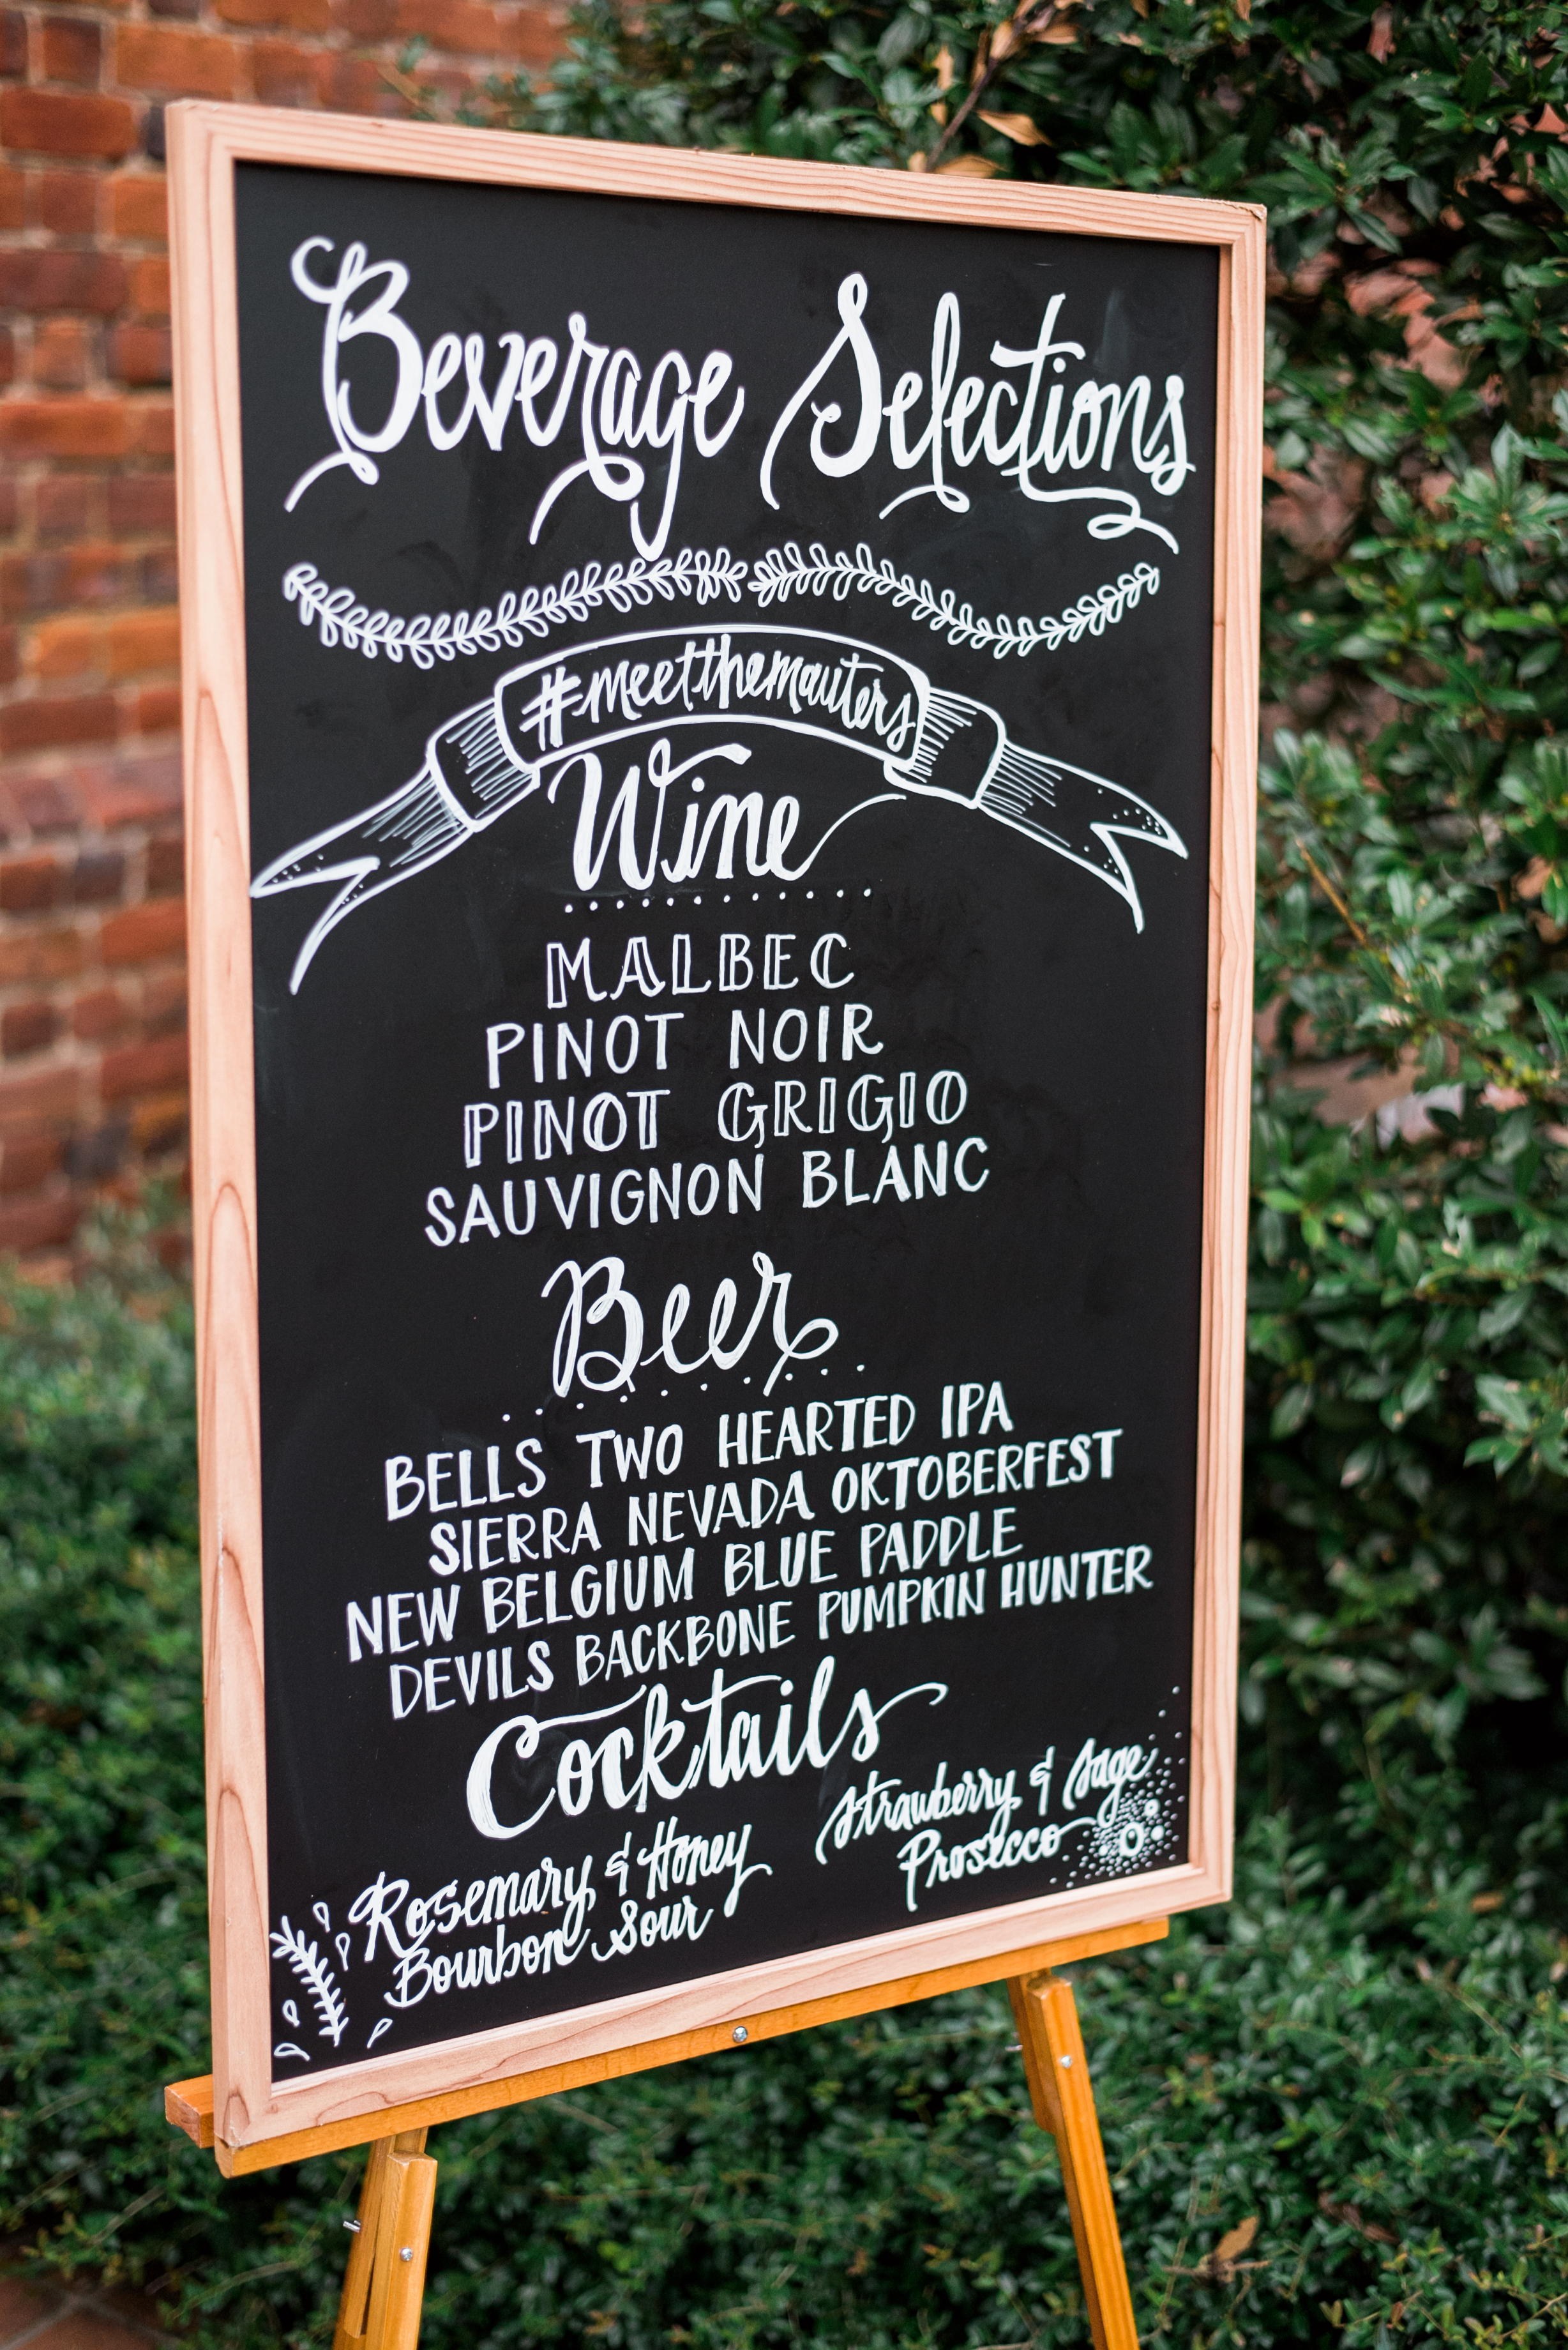 Beverage Selections
#meetthemauters
Wine
MALBEC
PINOT NOIR
PINOT GRIGIO
SAUVIGNON BLANC
Beer
BELLS TWO HEARTED IPA
SIERRA NEVADA OKTOBERFEST
NEW BELGIUM BLUE PADDLE
DEVILS BACKBONE PUMPKIN HUNTER
Cocktails
Rosemary & Honey
Bourbon Sour
Strawberry & Sage
Prosecco